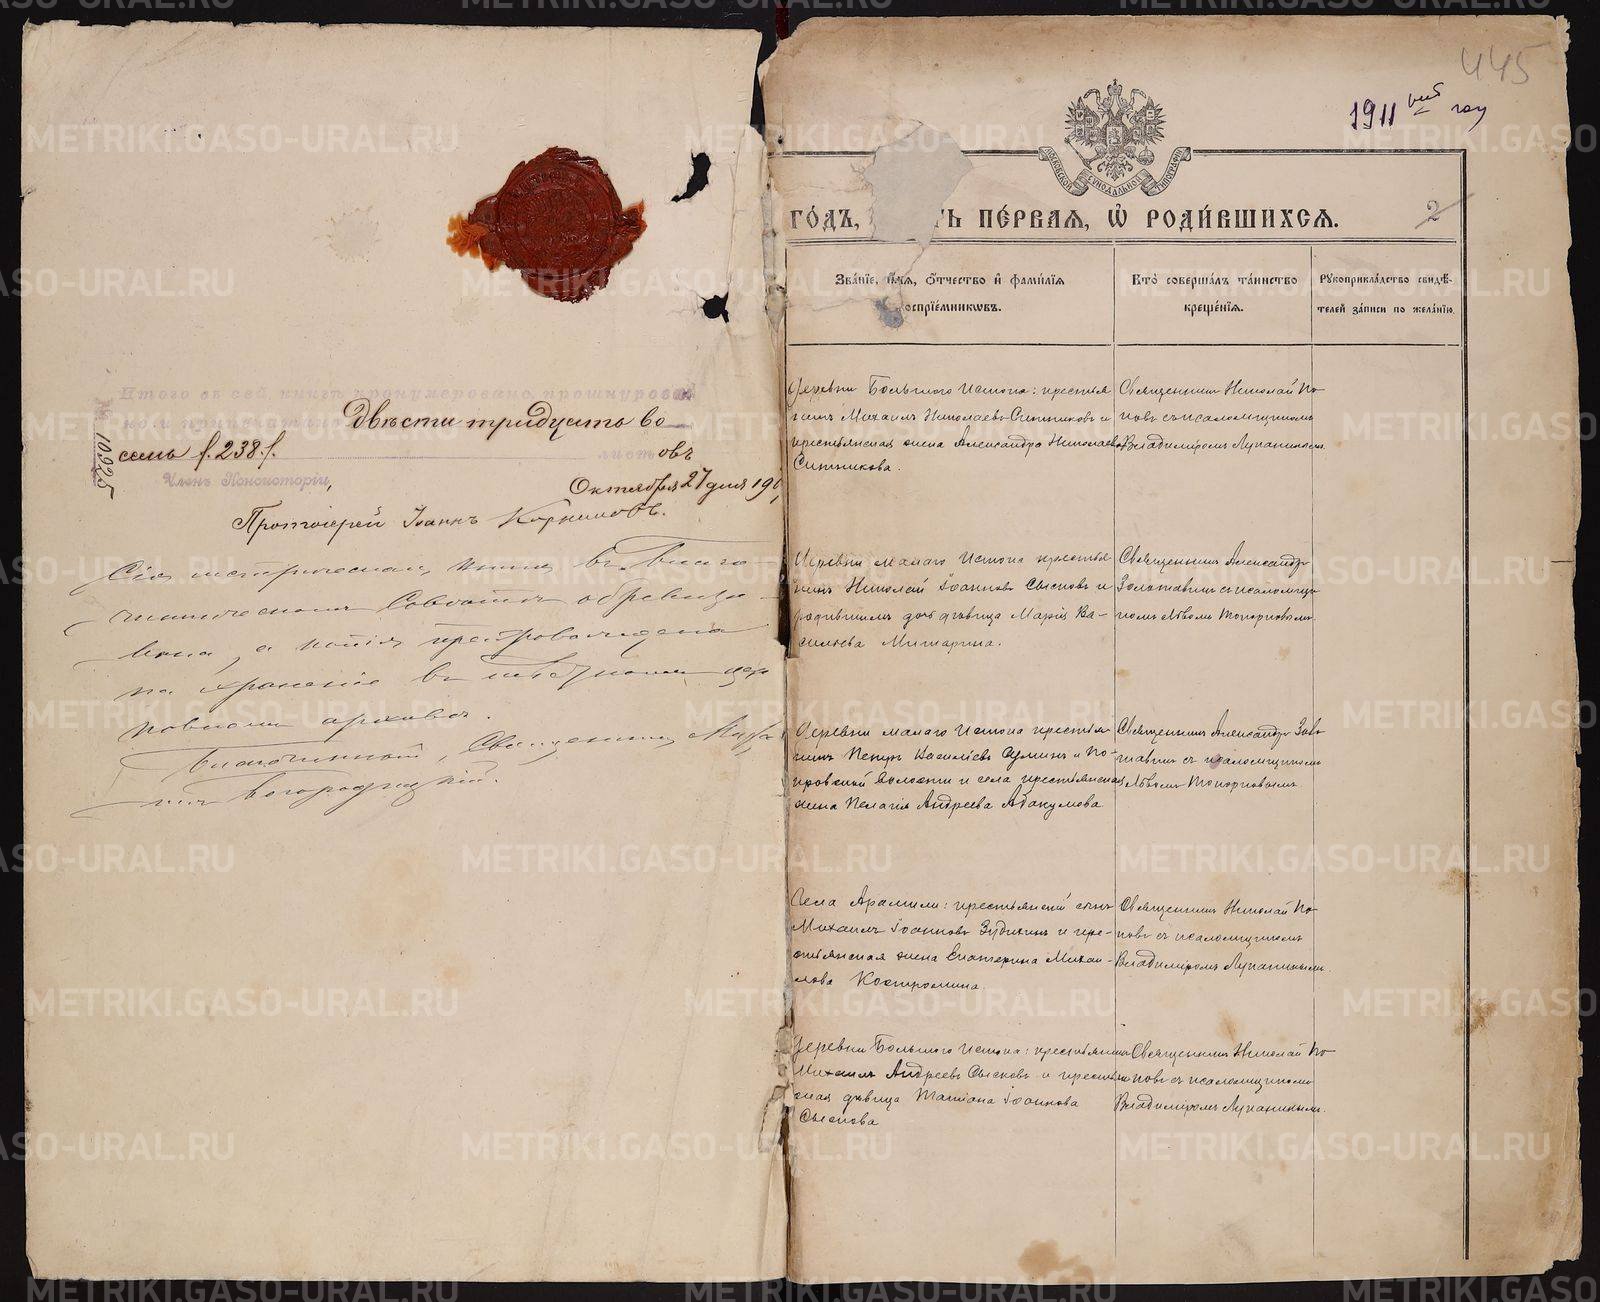 Итого въ сей книгѣ пронумеровано, прошнурован
но и припечатано Двѣсти тридцать во
семь /.238./. листовъ
№ 10925
Членъ Консисторіи,
Октября 27 дня 190
Протоіерей Іоаннъ
Сія метрическая книга въ Благо-
чинническомъ Совѣтѣ обревизо-
вана, а копія препровождена
на храненіе въ мѣстномъ цер
ковномъ архивѣ.
Благочинный, Священникъ
Богородицкій.
445
1911 годъ
МОСКОВСКОЙ СѴНОДАЛЬНОЙ ТИПОГРАФІИ
ГО́ДЪ, ТЬ ПЕ́РВАЯ, Ѿ РОДИ́ВШИХСЯ.
2
Зва́нїе, и́мя, ѻ́тчество и҆ фами́лїя
воспрїе́мникѡвъ.
Кто̀ соверша́лъ та́инство
креще́нїя.
Рꙋкоприкла́дство свидѣ́-
телей за́писи по жела́нїю.
Деревни Большого Истока: крестья
нинъ Михаилъ Николаевъ Ситниковъ и
крестьянская жена Александра Николаева
Ситникова.
Священникъ Николай По-
повъ съ псаломщикомъ
Владиміромъ Лупанинымъ.
Деревни Малаго Истока крестья
нинъ Николай Іоанновъ Сысковъ и
дѣвица Марія Ва-
сильева Митарина.
Священникъ Александръ
съ псаломщи-
комъ Львомъ Топорковымъ.
Деревни Малаго Истока крестья-
нинъ Петръ Василіевъ и По-
кровской волости и села крестьянская
жена Пелагія Андреева Абакумова
Священникъ Александръ
съ псаломщикомъ
Львомъ Топорковымъ.
Села Арамили: крестьянскій сынъ
Михаилъ Іоанновъ и кре-
стьянская жена Екатерина Михаи-
лова Костромина.
Священникъ Николай По-
повъ съ псаломщикомъ
Владиміромъ Лупанинымъ.
Деревни Большого Истока: крестьянинъ
Михаилъ Андреевъ Сысковъ и крестьян
ская дѣвица Татіана Іоаннова
Сыскова
Священникъ Николай По
повъ съ псаломщикомъ
Владиміромъ Лупанинымъ.
METRIKI.GASO-URAL.RU